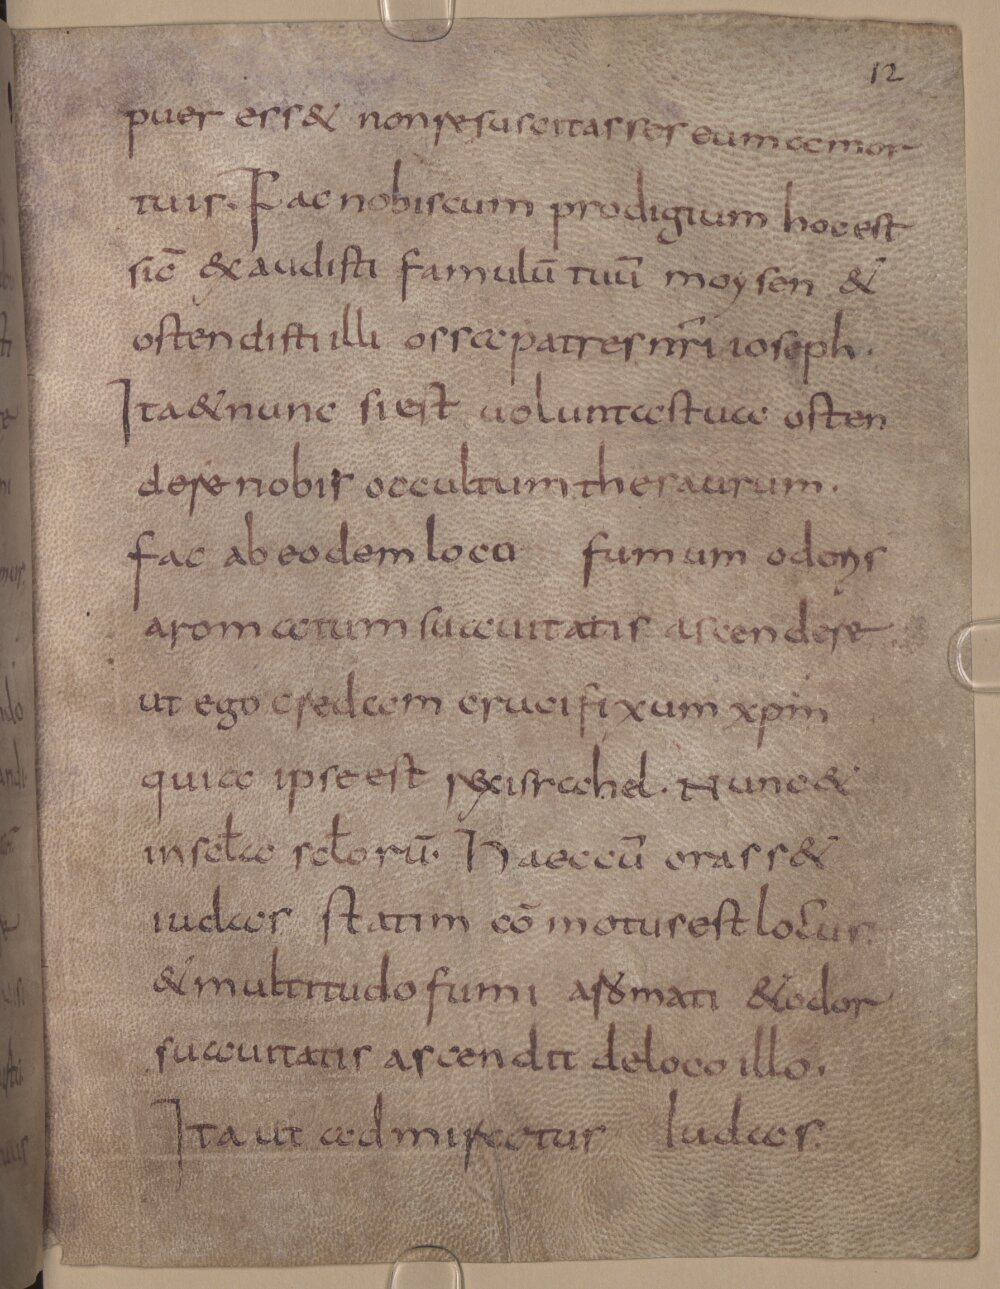 12
puer ess& non resuscitasses eum a mor
tuis. Fac nobiscum prodigium hoc est
sic̄ & audisti famulū tuū moysen &
ostendisti illi ossa patres nr̄i ioseph.
Ita & nunc si est uoluntas tua osten
dere nobis occultum thesaurum.
fac ab eodem loco fumum odoris
aromatum suauitatis ascendere
ut ego credam crucifixum xpm̄
quia ipse est rex israhel. Nunc &
in scła scłorū. Haec cū orass&
iudas statim cō motus est locus
& multitudo fumi aromati & odor
suauitatis ascendit de loco illo.
Ita ut admiratus Iudas.